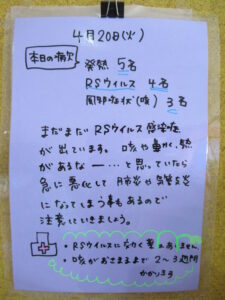 4月20日(火)
本日の病欠
発熱 5名
RSウイルス 4名
風邪症状(咳) 3名
まだまだ RSウイルス 感染症
が 出ています。咳や鼻水、熱
があるなー…と思っていたら
急に悪化して 肺炎や気管支炎
になってしまう事もあるので
注意していきましょう。
・RSウイルスになおく薬はありません
・咳がおさまるまで 2〜3週間
かかります